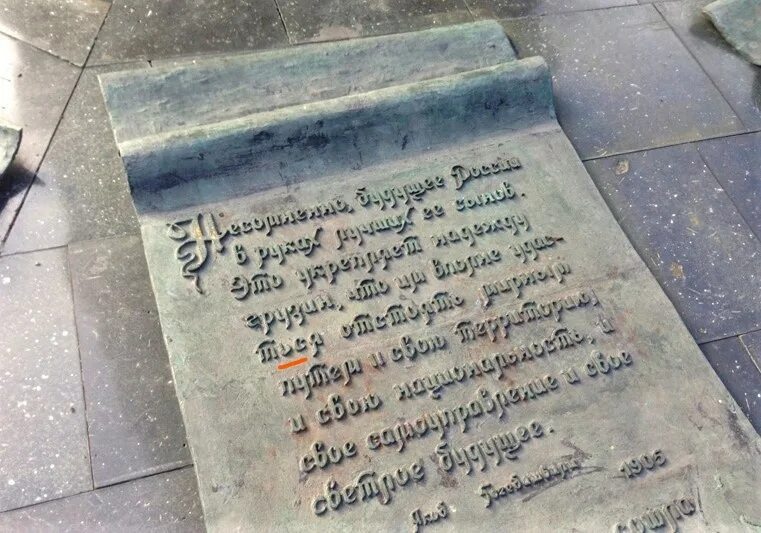 Несомненно, будущее России
в руках лучших ее сынов.
Это укрепляет надежду
грузин, что им вполне удас-
ться отстоять мирным
путем и свою территорию,
и свою национальность, и
свое самоуправление и свое
светлое будущее.
Яков Гогебашвили 1905